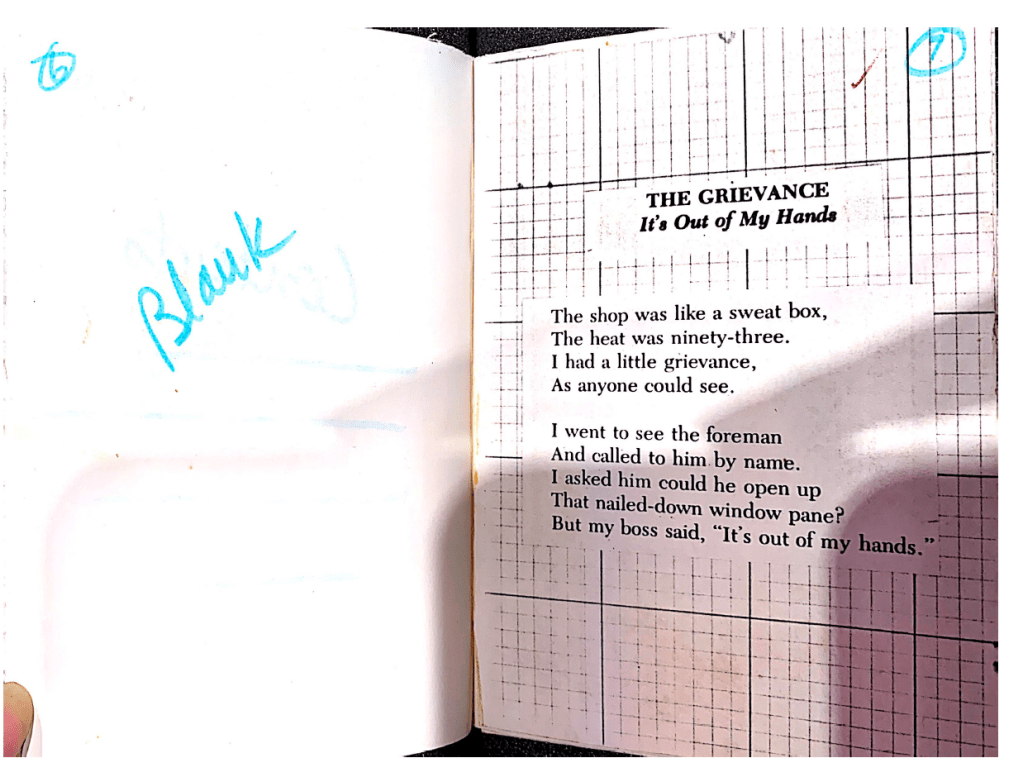 6
Blank
7
THE GRIEVANCE
It's Out of My Hands
The shop was like a sweat box,
The heat was ninety-three.
I had a little grievance,
As anyone could see.
I went to see the foreman
And called to him by name.
I asked him could he open up
That nailed-down window pane?
But my boss said, “It's out of my hands.”